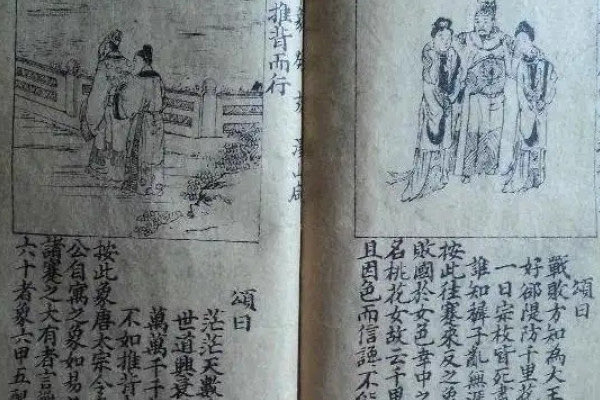 頌曰
戰敗方知為大王
好郤隄防千里花
一日宗枝皆死
誰知子亂無涯
按此往蹇來反之象
敗國於女色幸中之
名桃花女故云千里
且因色而信讒不能
推背而行
頌曰
茫茫天數
世道興衰
萬萬千千
不如推背
按此象唐太宗令
公自寓之象如易
諸蹇之大有者言
六十者六甲五